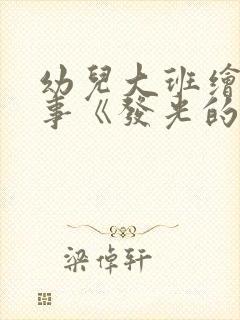 幼兒大班繪
事《發光的
梁倬軒